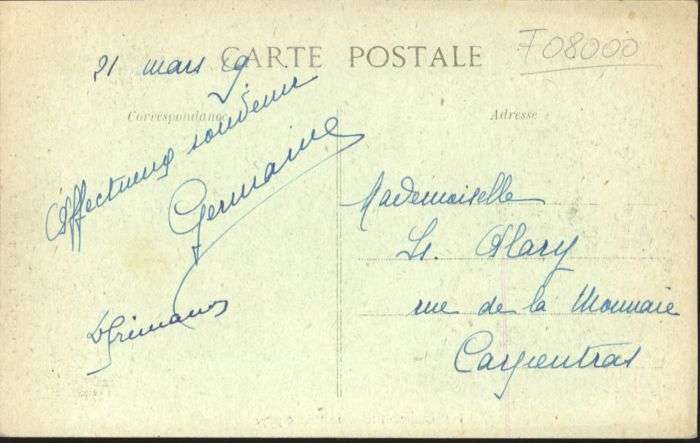 CARTE POSTALE
F08000
21 mars
Correspondance
Adresse
Affectueux souvenir
Germaine
Mademoiselle
Alary
rue de la Monnaie
Carpentras